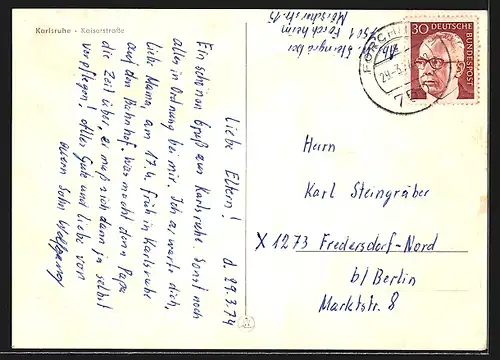 Karlsruhe - Kaiserstraße
Liebe Eltern! d. 29.3.74
Ein schönen Gruß aus Karlsruhe. Sonst noch
alles in Ordnung bei mir. Ich warte dich,
liebe Mama, am 17.4. früh in Karlsruhe
auf den Bahnhof. Was macht denn Papa
die Zeit über, er muß sich dann ja selbst
verpflegen! Alles Gute und Liebe von
euren Sohn Wolfgang
Abs. Steingräber
7501 Forchheim
FORCHHEIM
29.3.
75
30 DEUTSCHE BUNDESPOST
Herrn
Karl Steingräber
X 1273 Fredersdorf-Nord
b/Berlin
Marktstr. 8